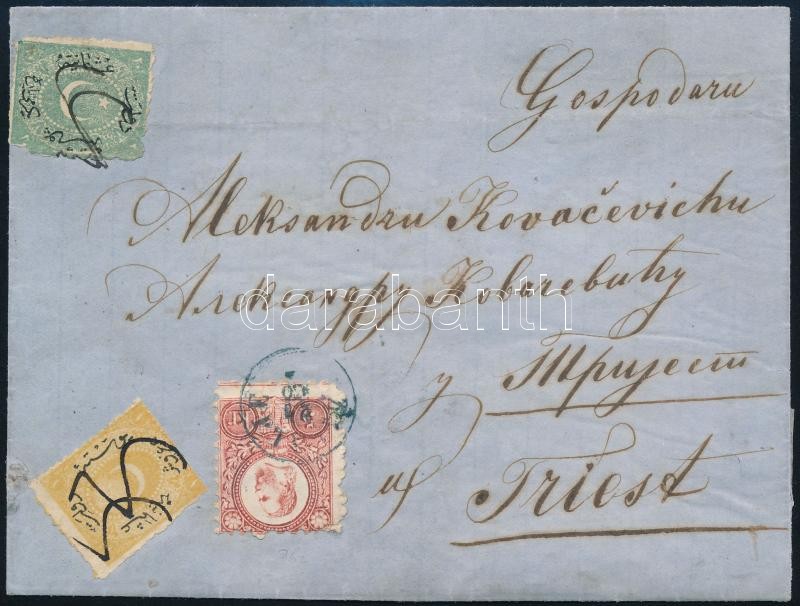 Gospodaru
Aleksandru Kovačevichu
Александру Ковачевићу
у Тријест
u Triest
darabanth